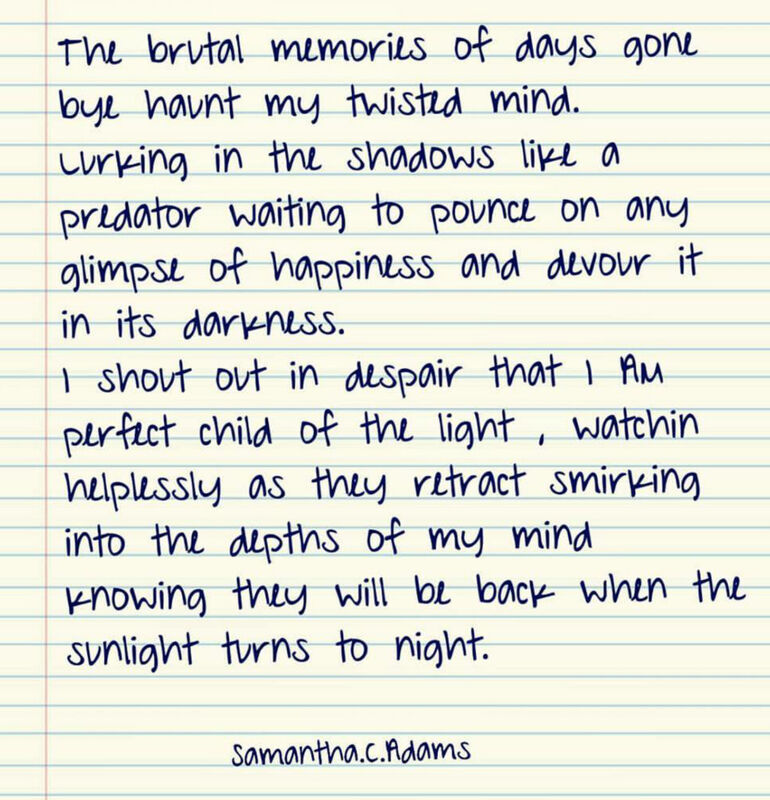 The brutal memories of days gone
bye haunt my twisted mind.
Lurking in the shadows like a
predator waiting to pounce on any
glimpse of happiness and devour it
in its darkness.
I shout out in despair that I AM
perfect child of the light , watchin
helplessly as they retract smirking
into the depths of my mind
knowing they will be back when the
sunlight turns to night.
Samantha.C.Adams